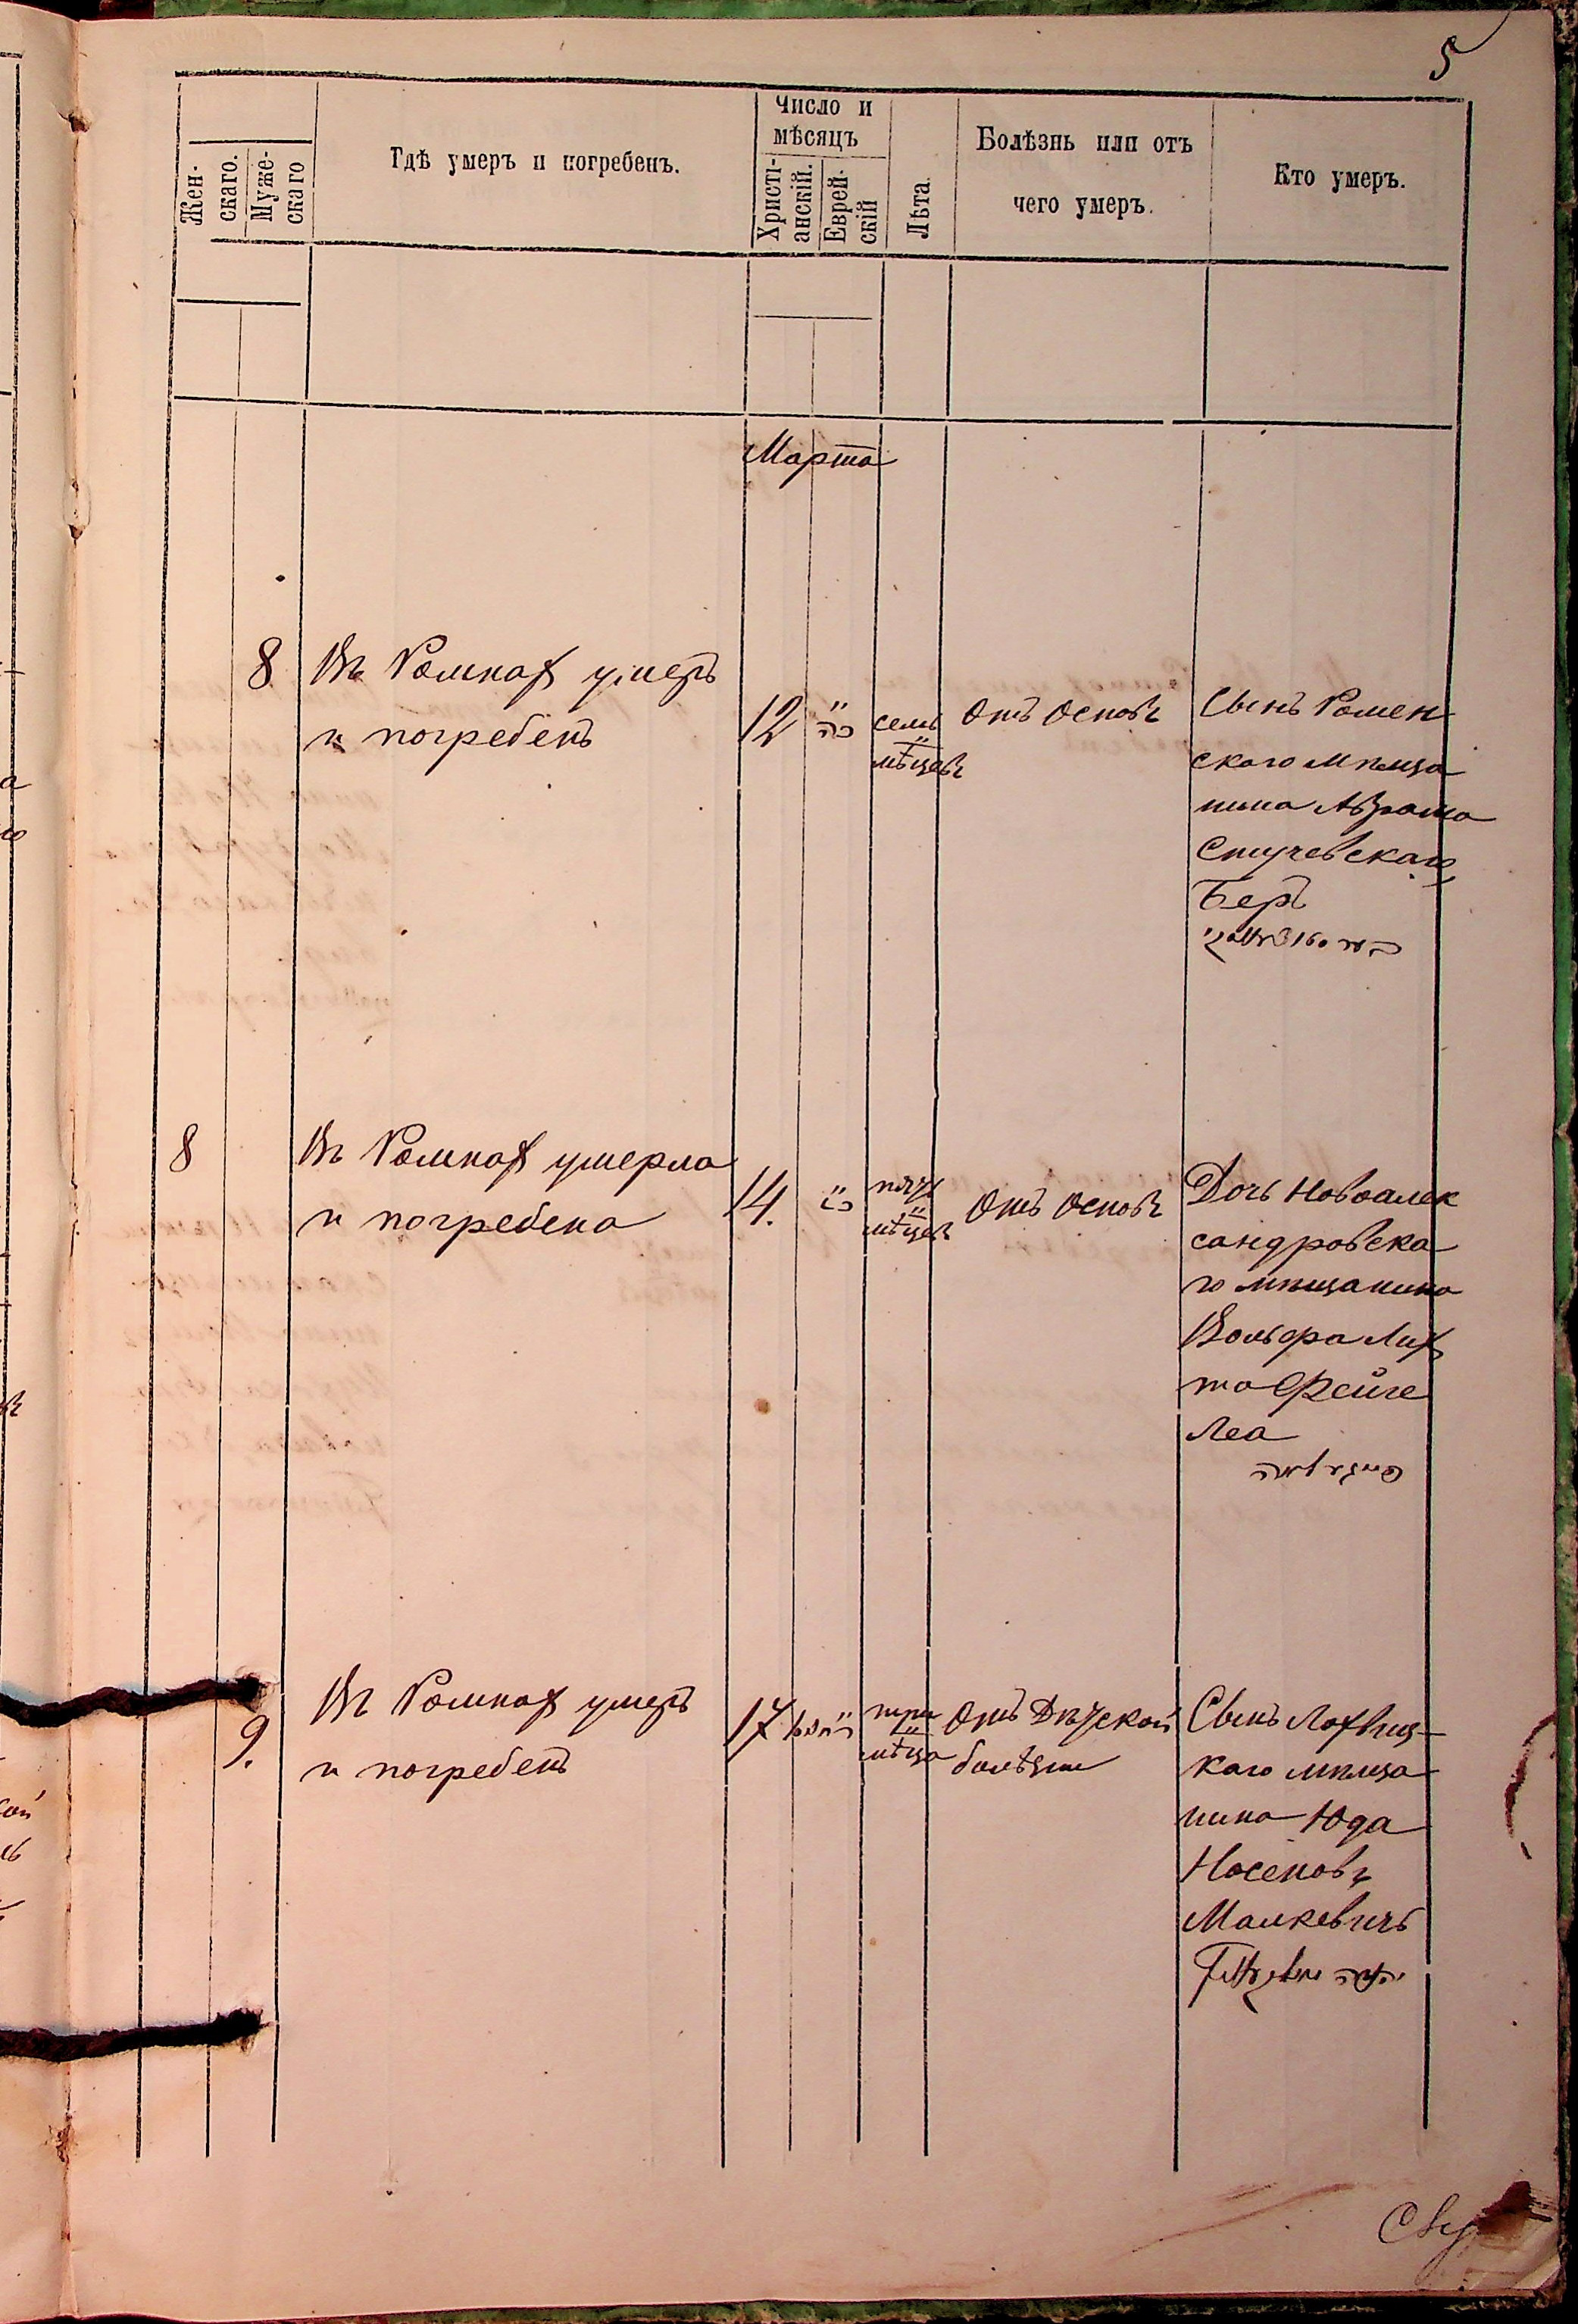 5
Жен-
скаго.
Муже-
скаго
Гдѣ умеръ и погребенъ.
Число и
мѣсяцъ
Христі-
анскій.
Еврей-
скій
Лѣта.
Болѣзнь или отъ
чего умеръ.
Кто умеръ.
Марта
8
Въ Ромнах умеръ
и погребенъ
12
כה
семь
мѣцевъ
Отъ Осповъ
Сынъ Ромен
скаго мѣща
нина Аврама
Стучевскаго
Беръ
8
Въ Ромнах умерла
и погребена
14.
כז
пять
мѣцевъ
Отъ Осповъ
Дочь Новоалек
сандровска
го мѣщанина
Вольфа Лих
та Фейге
Леа
פייגע לאה
9.
Въ Ромнах умеръ
и погребенъ
17
три
мѣца
Отъ Дѣтской
болѣзни
Сынъ Лохвиц-
каго мѣща
нина Юда
Носеновъ
Малкевичъ